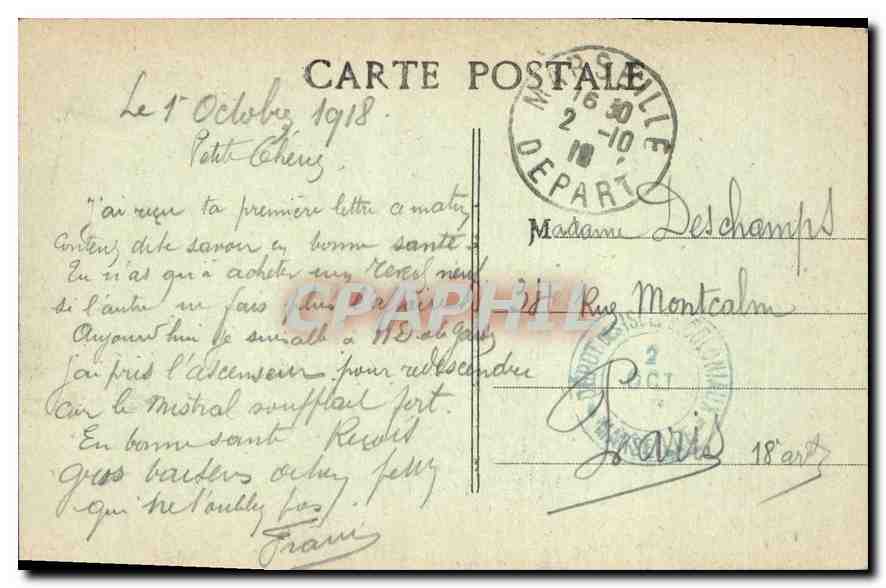 CARTE POSTALE
MARSEILLE
16 30
2 -10
18
DEPART
Le 1r Octobre 1918.
Petite Chérie
J'ai reçu ta première lettre ce matin
Content de te savoir en bonne santé
Tu n'as qu'à acheter un reveil neuf
si l'autre ne plus
Aujourd'hui je suis allé à N D de la Garde
j'ai pris l'ascenseur pour redescendre
car le Mistral soufflait fort.
En bonne santé Reçois
gros baisers de ton
qui ne t'oublie pas
Madame Deschamps
38 Rue Montcalm
Paris
18e arr
DEPOT DES ISOLES COLONIAUX
2
OCT
MARSEILLE
CPAPHIL